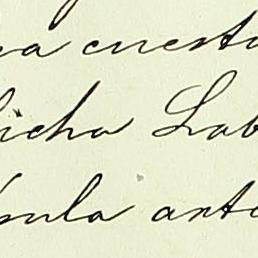 ca cuesta
licha Lab
sula anto